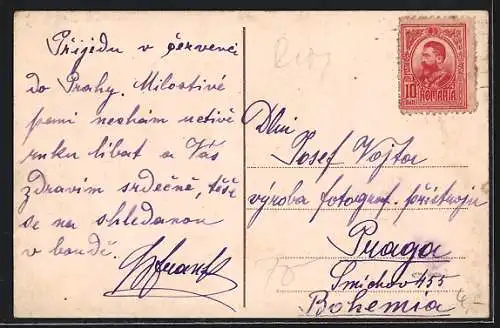 Přijedu v červenci
do Prahy. Milostivé
paní nechám uctivě
ruku líbat a Vás
zdravím srdečně, těše
se na shledanou
v bandě.
10 BANI
ROMANIA
Dlui
Josef Vojta
výroba fotograf. přístrojů
Praga
Smichov 455
Bohemia